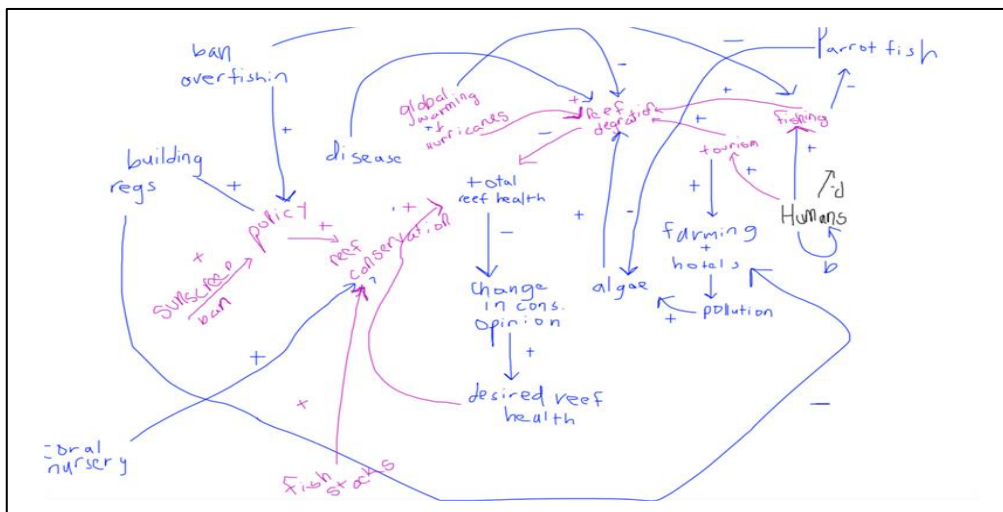 ban
overfishin
Parrot fish
global
warming
+
Hurricanes
reef
degration
fishing
disease
tourism
building
regs
total
reef health
policy
Humans
reef
conservation
farming
+
hotels
sunscreen
ban
change
in cons.
opinion
algae
pollution
desired reef
health
coral
nursery
fish
stocks